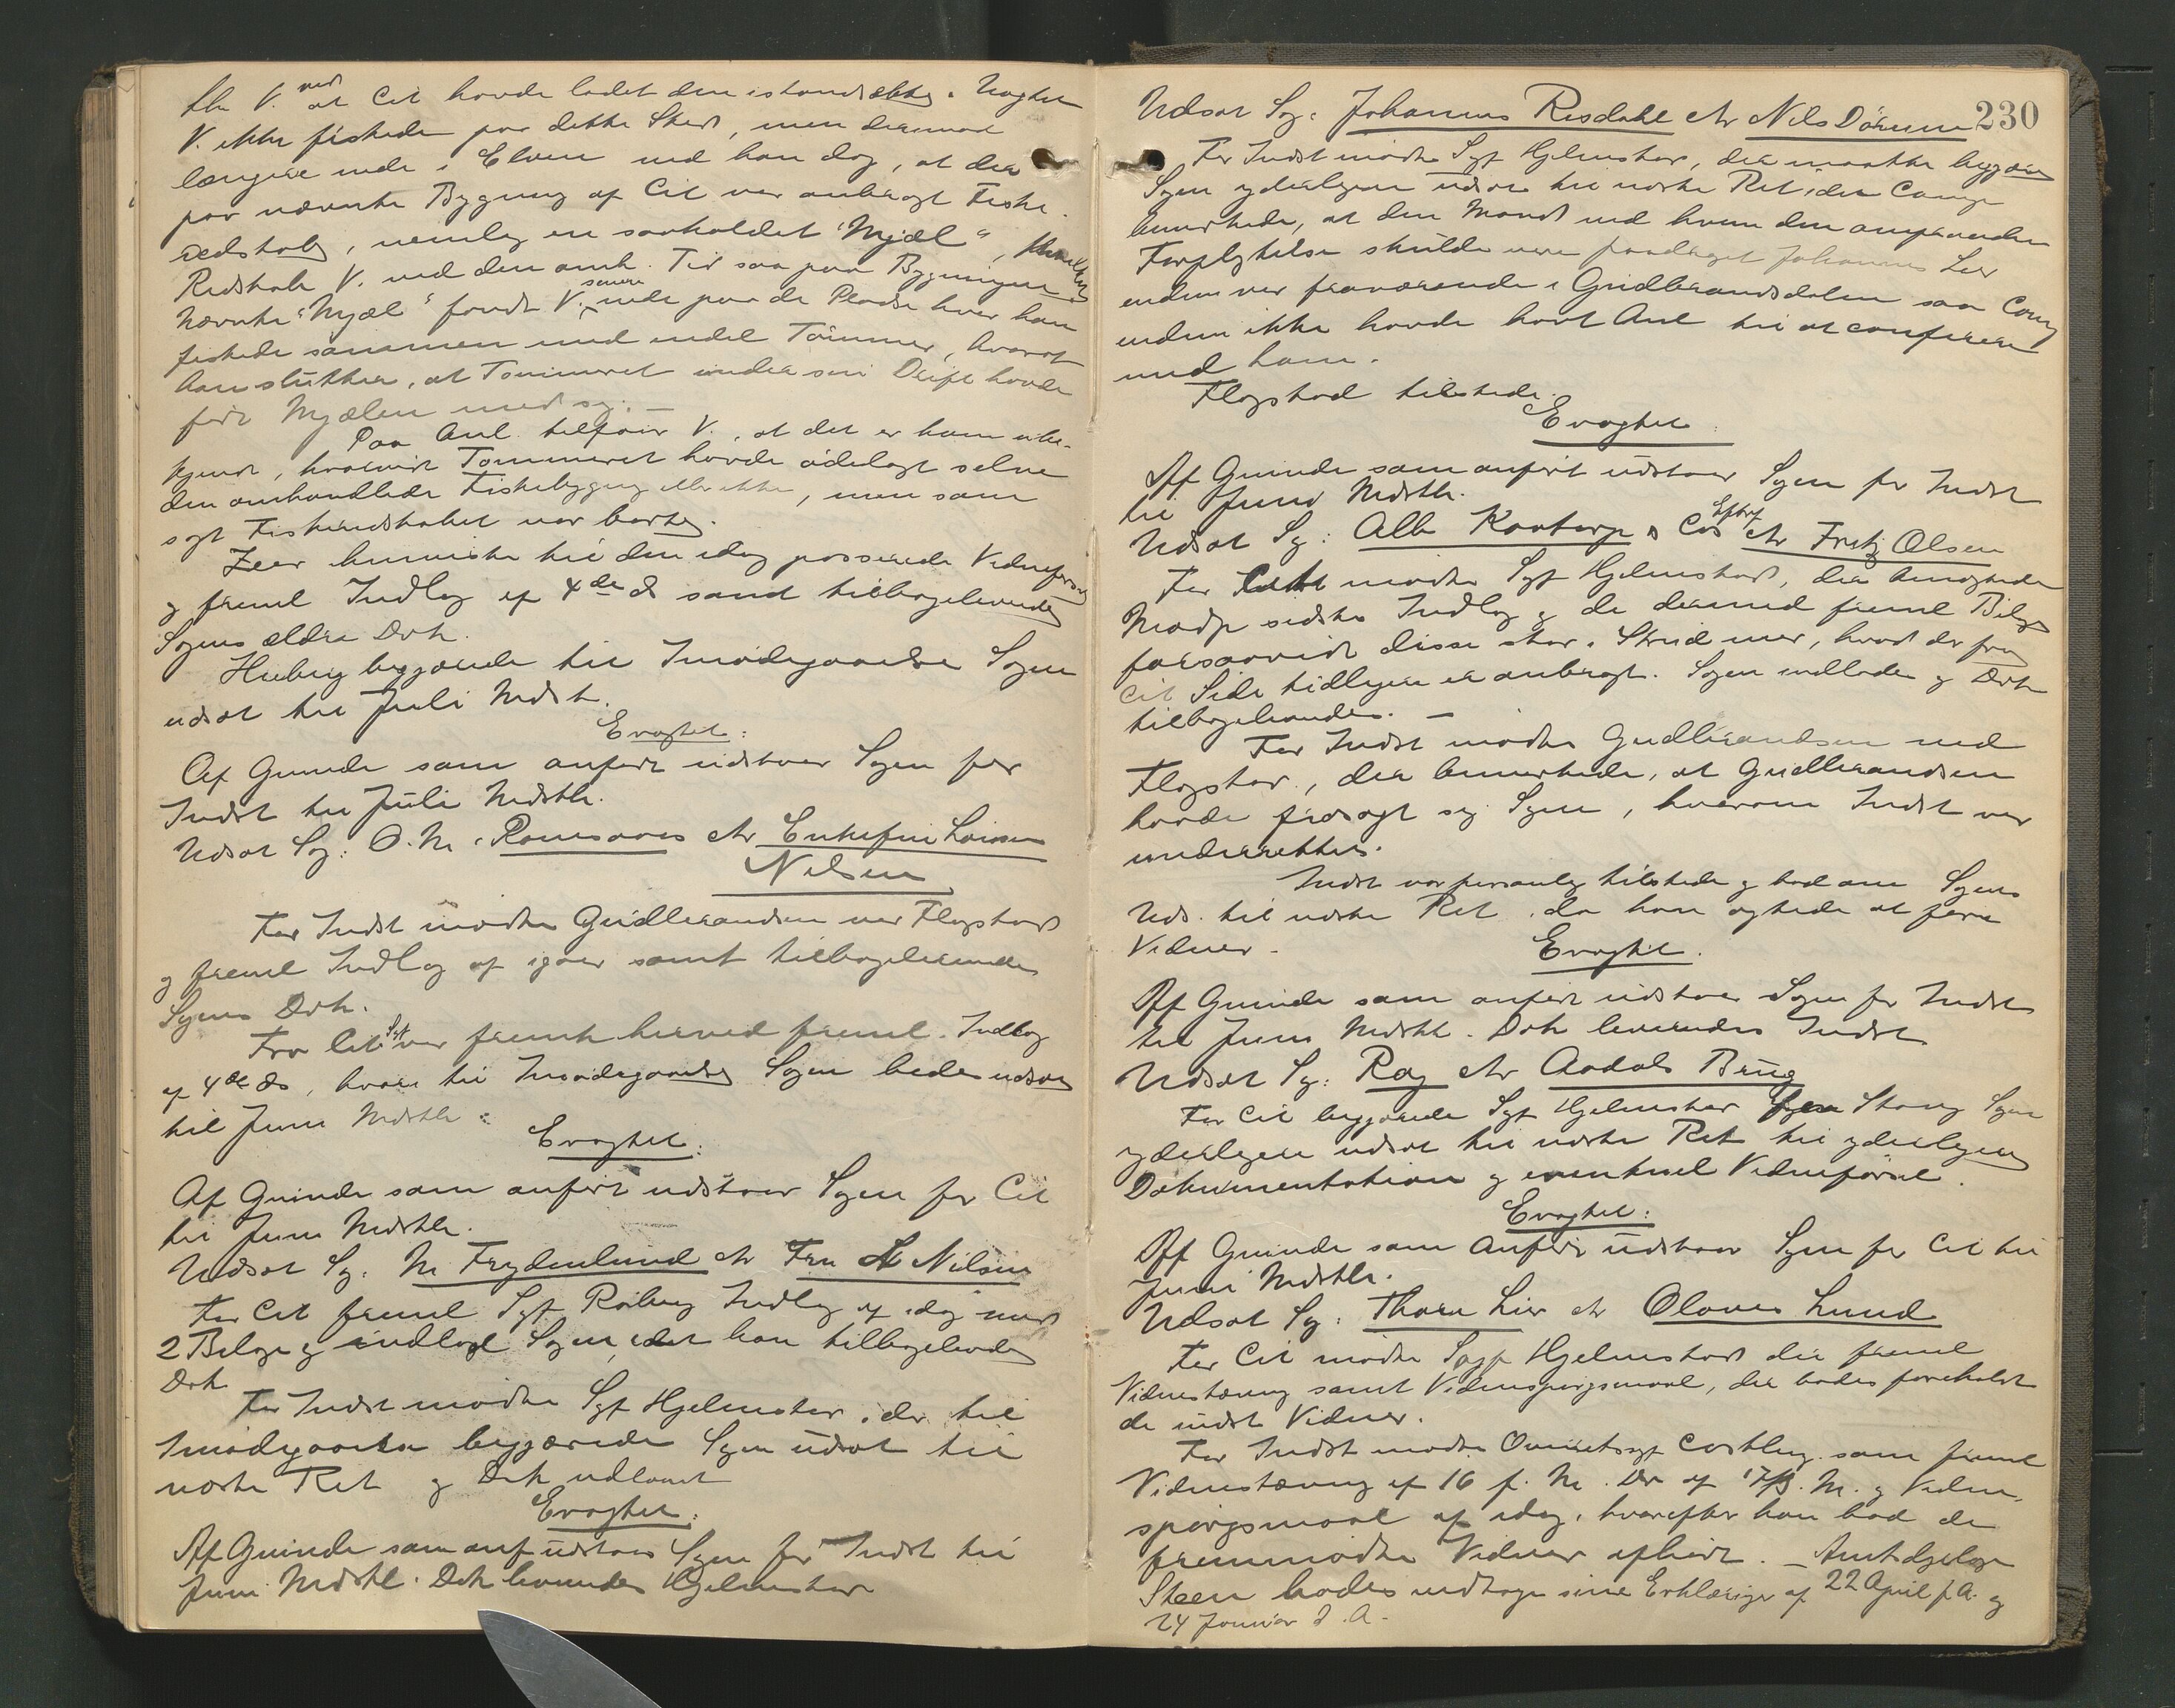 V. ved at Cit havde ladet den istandsætte. Uagtet
V. ikke fiskede paa dette Sted, men derimod
længere nede i Elven ved han dog, at der
paa nævnte Bygning af Cit var anbragt Fiske-
redskab, nemlig en saakaldet "Mjæl",
Redskab V. ved den anh. Tid saa paa Bygningen.
Nævnte "Mjæl" fandt V. senere nede paa de Pladse hvor han
fiskede sammen med endel Tømmer, hvoraf
han slutter, at Tømmeret under sin Drift havde
ført Mjælen med sig. —
Paa Anl. tilføier V., at det er ham ube-
kjendt, hvorvidt Tømmeret havde ødelagt selve
den omhandlede Fiskebygning eller ikke, men som
sagt Fiskeredskabet var borte.
henviste til den idag passerede Vidneførsel
og freml Indlæg af 4de ds samt tilbageleverede
Sagens ældre Dok.
Huberg begjærede til Imødegaaelse Sagen
udsat til Juli Mdst.
Eragtet:
Af Grunde som anført udstaar Sagen for
Indst til Juli Mdsth.
Udsat Sag: O. M. Ramsaas ctr Enkefru Lovise
Nilsen
For Indst mødte Gudbrandsen ved Flagstad
og freml Indlæg af igaar samt tilbageleverede
Sagens Dok.
Fra Cits Sgf var fremk herved freml. Indlæg
af 4de ds, hvori til Imødegaaelse Sagen bedes udsat
til Juni Mdsth.
Eragtet:
Af Grunde som anført udstaar Sagen for Cit
til Juni Mdsth.
Udsat Sag: M Frydenlund ctr Fru Nilsen
For Cit freml Sgf Roberg Indlæg af idag med
2 Bilage og indlod Sagen, idet han tilbageleverede
Dok
For Indst mødte Sgf Hjelmstad, der til
Imødegaaelse begjærede Sagen udsat til
næste Ret og Dok udlaant
Eragtet:
Af Grunde som anf udstaar Sagen for Indst til
Juni Mdsth. Dok leveredes Hjelmstad
230
Udsat Sag: Johannes Risdahl ctr Nils Dørum
For Indst mødte Sgf Hjelmstad, der maatte begjære
Sagen yderligere udsat til næste Ret, idet Comp
bemærkede, at den Mand ved hvem den omprocederede
Forpligtelse skulde være paadraget Johannes Lier
endnu var fraværende i Gudbrandsdalen saa Comp
endnu ikke havde havt Anl til at conferere
med ham.
Flagstad tilstede.
Eragtet:
Af Grunde som anført udstaar Sagen for Indst
til Juni Mdsth.
Udsat Sag: Alb Kavtorp & Cos Eftf ctr Fritz Olsen
For Cit mødte Sgf Hjelmstad, der benegtede
Modp sidste Indlæg og de dermed freml Bilag
forsaavidt disse staar i Strid mer, hvad der fra
Cit Side tidligere er anbragt. Sagen indlodes og Dok
tilbageleveredes. —
For Indst mødte Gudbrandsen ved
Flagstad, der bemærkede, at Gudbrandsen
havde frasagt sig Sagen, hvorom Indst var
underrettet.
Indst var personlig tilstede og bad om Sagens
Uds. til næste Ret, da han agtede at føre
Vidner.
Eragtet.
Af Grunde som anført udstaar Sagen for Indst
til Juni Mdsth. Dok leveredes Indst
Udsat Sag: Roy ctr Aadals Brug
For Cit begjærede Sgf Hjelmstad for Stang Sagen
yderligere udsat til næste Ret til yderligere
Dokumentation og eventuel Vidneførsel.
Eragtet:
Af Grunde som anført udstaar Sagen for Cit til
Juni Mdsth.
Udsat Sag: Thore Lier ctr Olaves Lund
For Cit mødte Sagf Hjelmstad der freml
Vidnestævning samt Vidnespørgsmaal, der bades foreholdt
de indst Vidner.
For Indst mødte Overretssgf Castberg som freml
Vidnestævning af 16 f. M. Do af 17 f. M. og Vidne-
spørgsmaal af idag, hvorefter han bad de
fremmødte Vidner afhørt. — Amtsdyrlæge
Steen bades vedtage sine Erklæringer af 22 April f. A. og
24 Januar d. A.